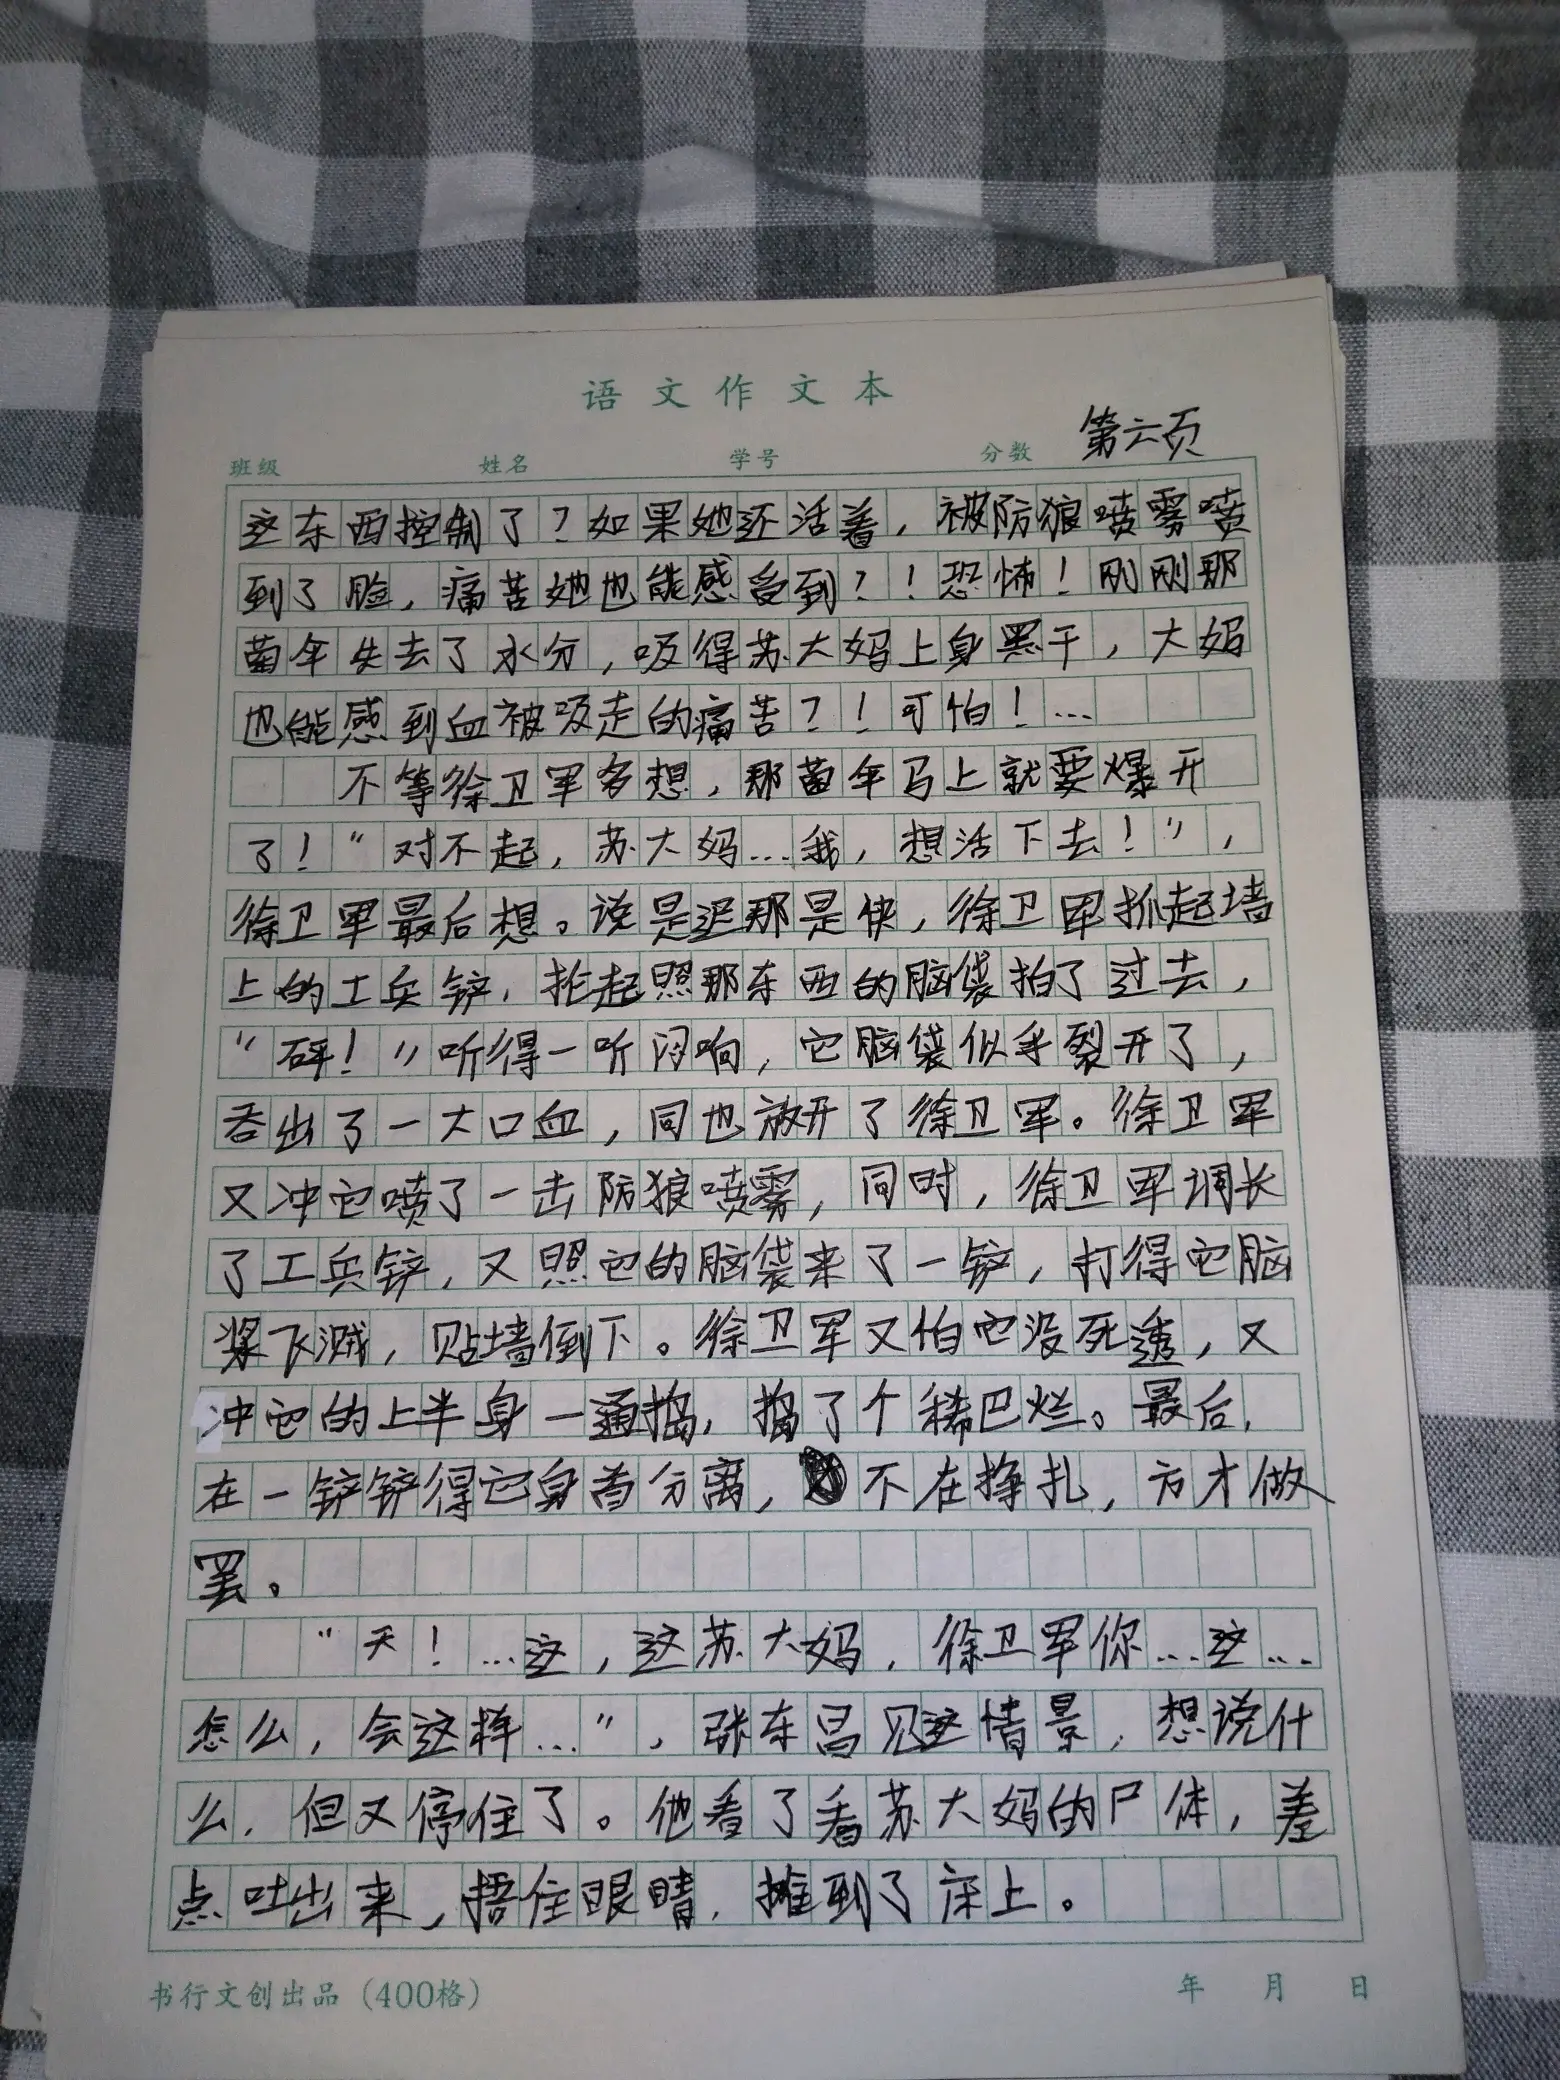 语文作文本
第六页
班级 姓名 学号 分数
这东西控制了？如果她还活着，被防狼喷雾喷
到了脸，痛苦她也能感受到？！恐怖！刚刚那
菌伞失去了水分，吸得苏大妈上身黑干，大妈
也能感到血被吸走的痛苦？！可怕！…
不等徐卫军多想，那菌伞马上就要爆开
了！“对不起，苏大妈…我，想活下去！”，
徐卫军最后想。说是迟那是快，徐卫军抓起墙
上的工兵铲，抡起照那东西的脑袋拍了过去，
“砰！”听得一听闷响，它脑袋似乎裂开了，
吞出了一大口血，同也放开了徐卫军。徐卫军
又冲它喷了一击防狼喷雾，同时，徐卫军调长
了工兵铲，又照它的脑袋来了一铲，打得它脑
浆飞溅，贴墙倒下。徐卫军又怕它没死透，又
冲它的上半身一通捣，捣了个稀巴烂。最后，
在一铲铲得它身首分离，不在挣扎，方才做
罢。
“天！…这，这苏大妈，徐卫军你…这…
怎么，会这样…”，张东昌见这情景，想说什
么，但又停住了。他看了看苏大妈的尸体，差
点吐出来，捂住眼睛，摊到了床上。
书行文创出品（400格） 年 月 日